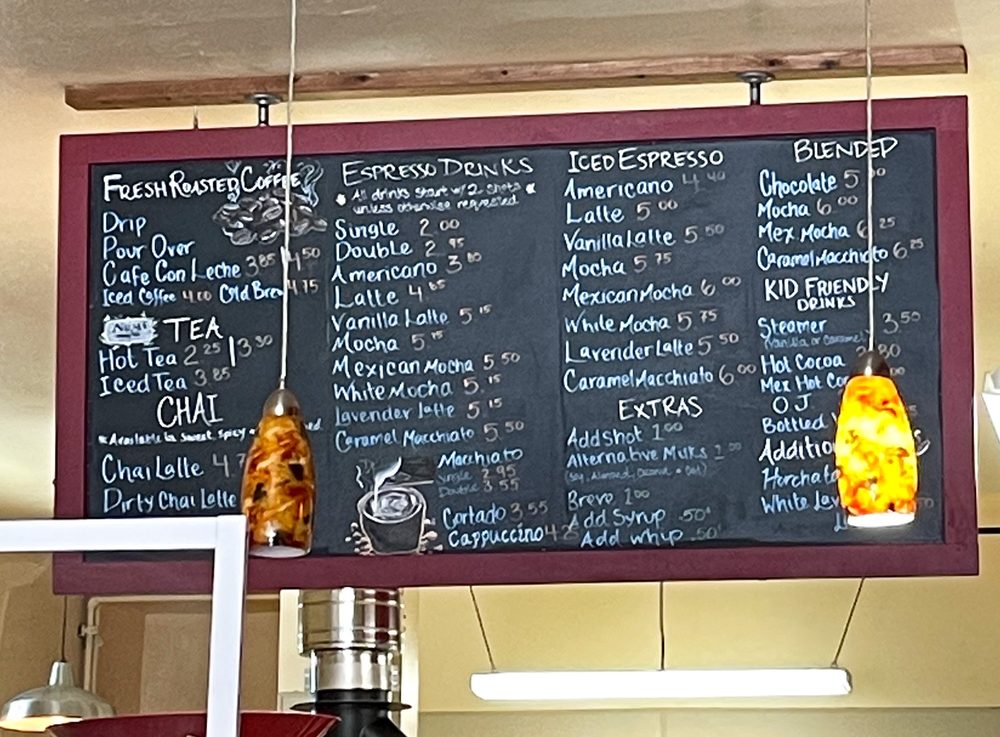 FRESH ROASTED COFFEE
Drip
Pour Over
Cafe Con Leche 3.85 4.50
Iced Coffee 4.00 Cold Brew 4.75
TEA
Hot Tea 2.25 | 3.30
Iced Tea 3.85
CHAI
*Available in sweet, spicy
Chai Latte 4
Dirty Chai Latte
ESPRESSO DRINKS
* All drinks start w/ 2 shots *
unless otherwise requested.
Single 2.00
Double 2
Americano 3
Latte 4
Vanilla Latte 5
Mocha 5
Mexican Mocha 5.50
White Mocha 5.15
Lavender Latte 5.15
Caramel Macchiato 5.50
Macchiato
Single 2.95
Double 3.55
Cortado 3.55
Cappuccino 4
ICED ESPRESSO
Americano 4.40
Latte 5.00
Vanilla Latte 5.50
Mocha 5.75
Mexican Mocha 6.00
White Mocha 5.75
Lavender Latte 5.50
Caramel Macchiato 6.00
EXTRAS
Add Shot 1.00
Alternative Milks
Breve 1.00
Add Syrup .50¢
Add Whip .50¢
BLENDED
Chocolate 5
Mocha 6.00
Mex Mocha 6.25
Caramel Macchiato 6.25
KID FRIENDLY
DRINKS
Steamer 3.50
(Vanilla or Caramel)
Hot Cocoa
Mex Hot
OJ
Bottled
Horchata
White